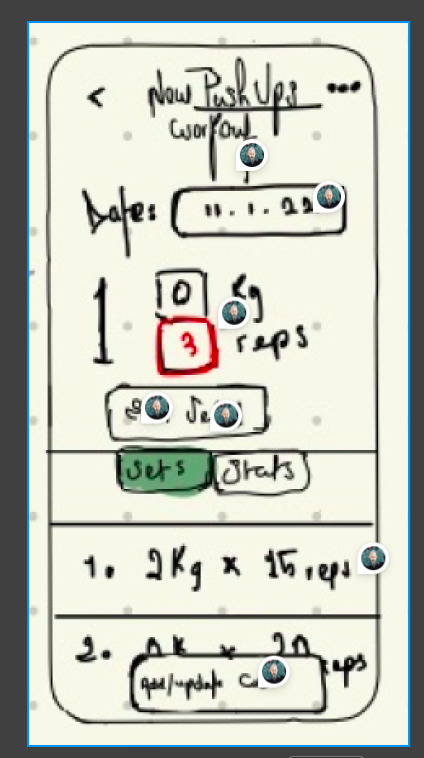 < New PushUps •••
Workout
Date: 11.1.22
1 0 Kg
3 reps
Sets Stats
1. 2Kg x 15 reps
2. x 20 reps
Add/update